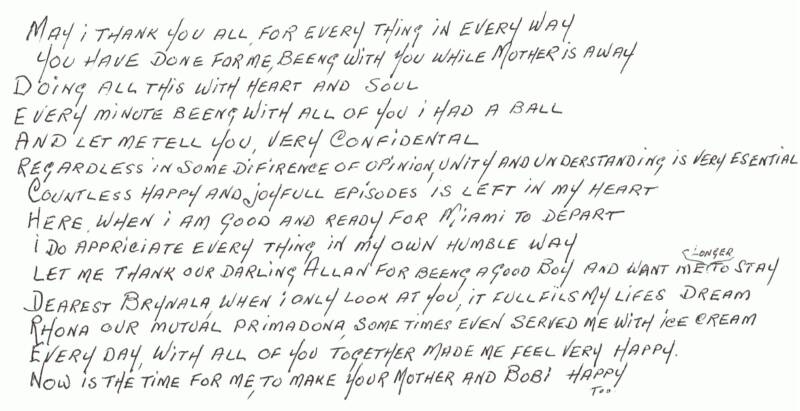 MAY i THANK YOU ALL, FOR EVERY THING IN EVERY WAY
YOU HAVE DONE FOR ME, BEENG WITH YOU WHILE MOTHER IS AWAY
DOING ALL THIS WITH HEART AND SOUL
EVERY MINUTE BEENG WITH ALL OF YOU i HAD A BALL
AND LET ME TELL YOU, VERY CONFIDENTAL
REGARDLESS IN SOME DIFIRENCE OF OPINION, UNITY AND UNDERSTANDING IS VERY ESENTIAL
COUNTLESS HAPPY AND JOYFULL EPISODES IS LEFT IN MY HEART
HERE, WHEN i AM GOOD AND READY FOR MIAMI TO DEPART
i DO APPRICIATE EVERY THING IN MY OWN HUMBLE WAY
LONGER
LET ME THANK OUR DARLING ALLAN FOR BEENG A GOOD BOY AND WANT ME TO STAY
DEAREST BRYNALA, WHEN i ONLY LOOK AT YOU, IT FULLFILS MY LIFES DREAM
RHONA OUR MUTUAL PRIMADONA, SOME TIMES EVEN SERVED ME WITH iCE CREAM
EVERY DAY, WITH ALL OF YOU TOGETHER MADE ME FEEL VERY HAPPY.
NOW IS THE TIME FOR ME, TO MAKE YOUR MOTHER AND BOBi HAPPY
TOO